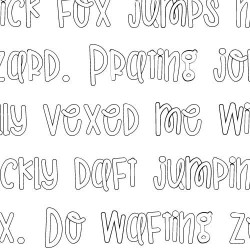 ick fox jumps h
zard. Prating jo
lly vexed me wi
ckly daft jumpin
x. Do wafting z